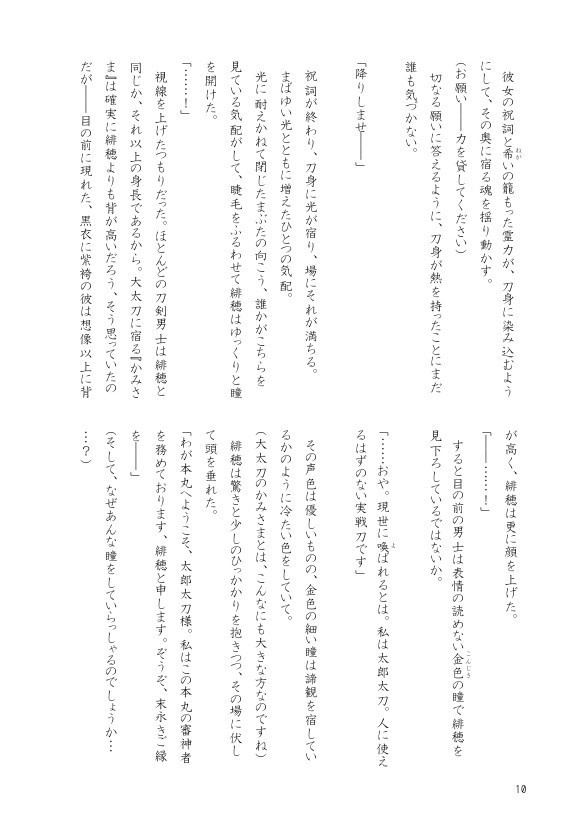 彼女の祝詞と希いの籠もった霊力が、刀身に染み込むよう
にして、その奥に宿る魂を揺り動かす。
(お願い――力を貸してください)
切なる願いに答えるように、刀身が熱を持ったことにまだ
誰も気づかない。
「降りしませ――」
祝詞が終わり、刀身に光が宿り、場にそれが満ちる。
まばゆい光とともに増えたひとつの気配。
光に耐えかねて閉じたまぶたの向こう、誰かがこちらを
見ている気配がして、睫毛をふるわせて緋穂はゆっくりと瞳
を開けた。
「……！」
視線を上げたつもりだった。ほとんどの刀剣男士は緋穂と
同じか、それ以上の身長であるから。大太刀に宿る『かみさ
ま』は確実に緋穂よりも背が高いだろう、そう思っていたの
だが――目の前に現れた、黒衣に紫袴の彼は想像以上に背
が高く、緋穂は更に顔を上げた。
「――……！」
すると目の前の男士は表情の読めない金色の瞳で緋穂を
見下ろしているではないか。
「……おや。現世に喚ばれるとは。私は太郎太刀。人に使え
るはずのない実戦刀です」
その声色は優しいものの、金色の細い瞳は諦観を宿してい
るかのように冷たい色をしていて。
(大太刀のかみさまとは、こんなにも大きな方なのですね)
緋穂は驚きと少しのひっかかりを抱きつつ、その場に伏し
て頭を垂れた。
「わが本丸へようこそ、太郎太刀様。私はこの本丸の審神者
を務めております、緋穂と申します。ぞうぞ、末永きご縁
を――」
(そして、なぜあんな瞳をしていらっしゃるのでしょうか…
…？)
10